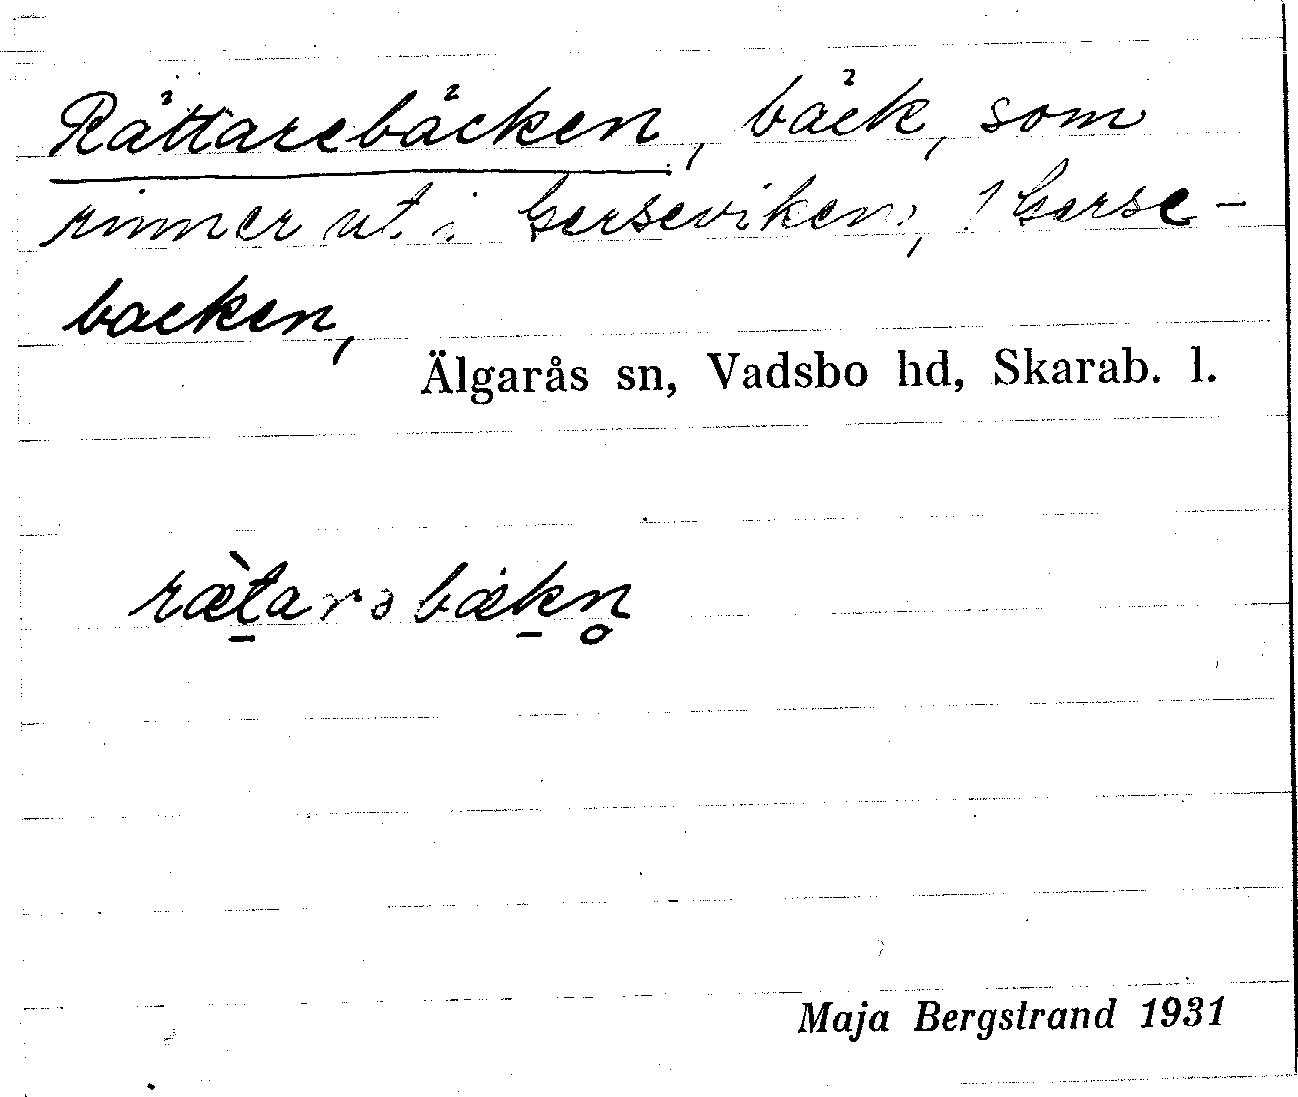 Rättarebäcken, bäck, som
rinner ut i Gerseviken, 1 Gerse-
backen,
Älgarås sn, Vadsbo hd, Skarab. l.
ræ̀t̲arəbæk̲n̥
Maja Bergstrand 1931